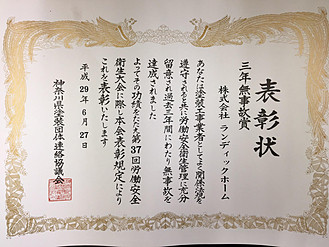 表彰状
三年無事故賞
株式会社 ランディックホーム
あなたは塗装工事業者としてその関係法令を
遵守されるとともに労働安全衛生管理に充分
留意され過去三年間にわたり無事故を
達成されました
よってその功績をたたえ第37回労働安全
衛生大会に際し本会表彰規定により
これを表彰いたします
平成29年6月27日
神奈川県塗装団体連絡協議会